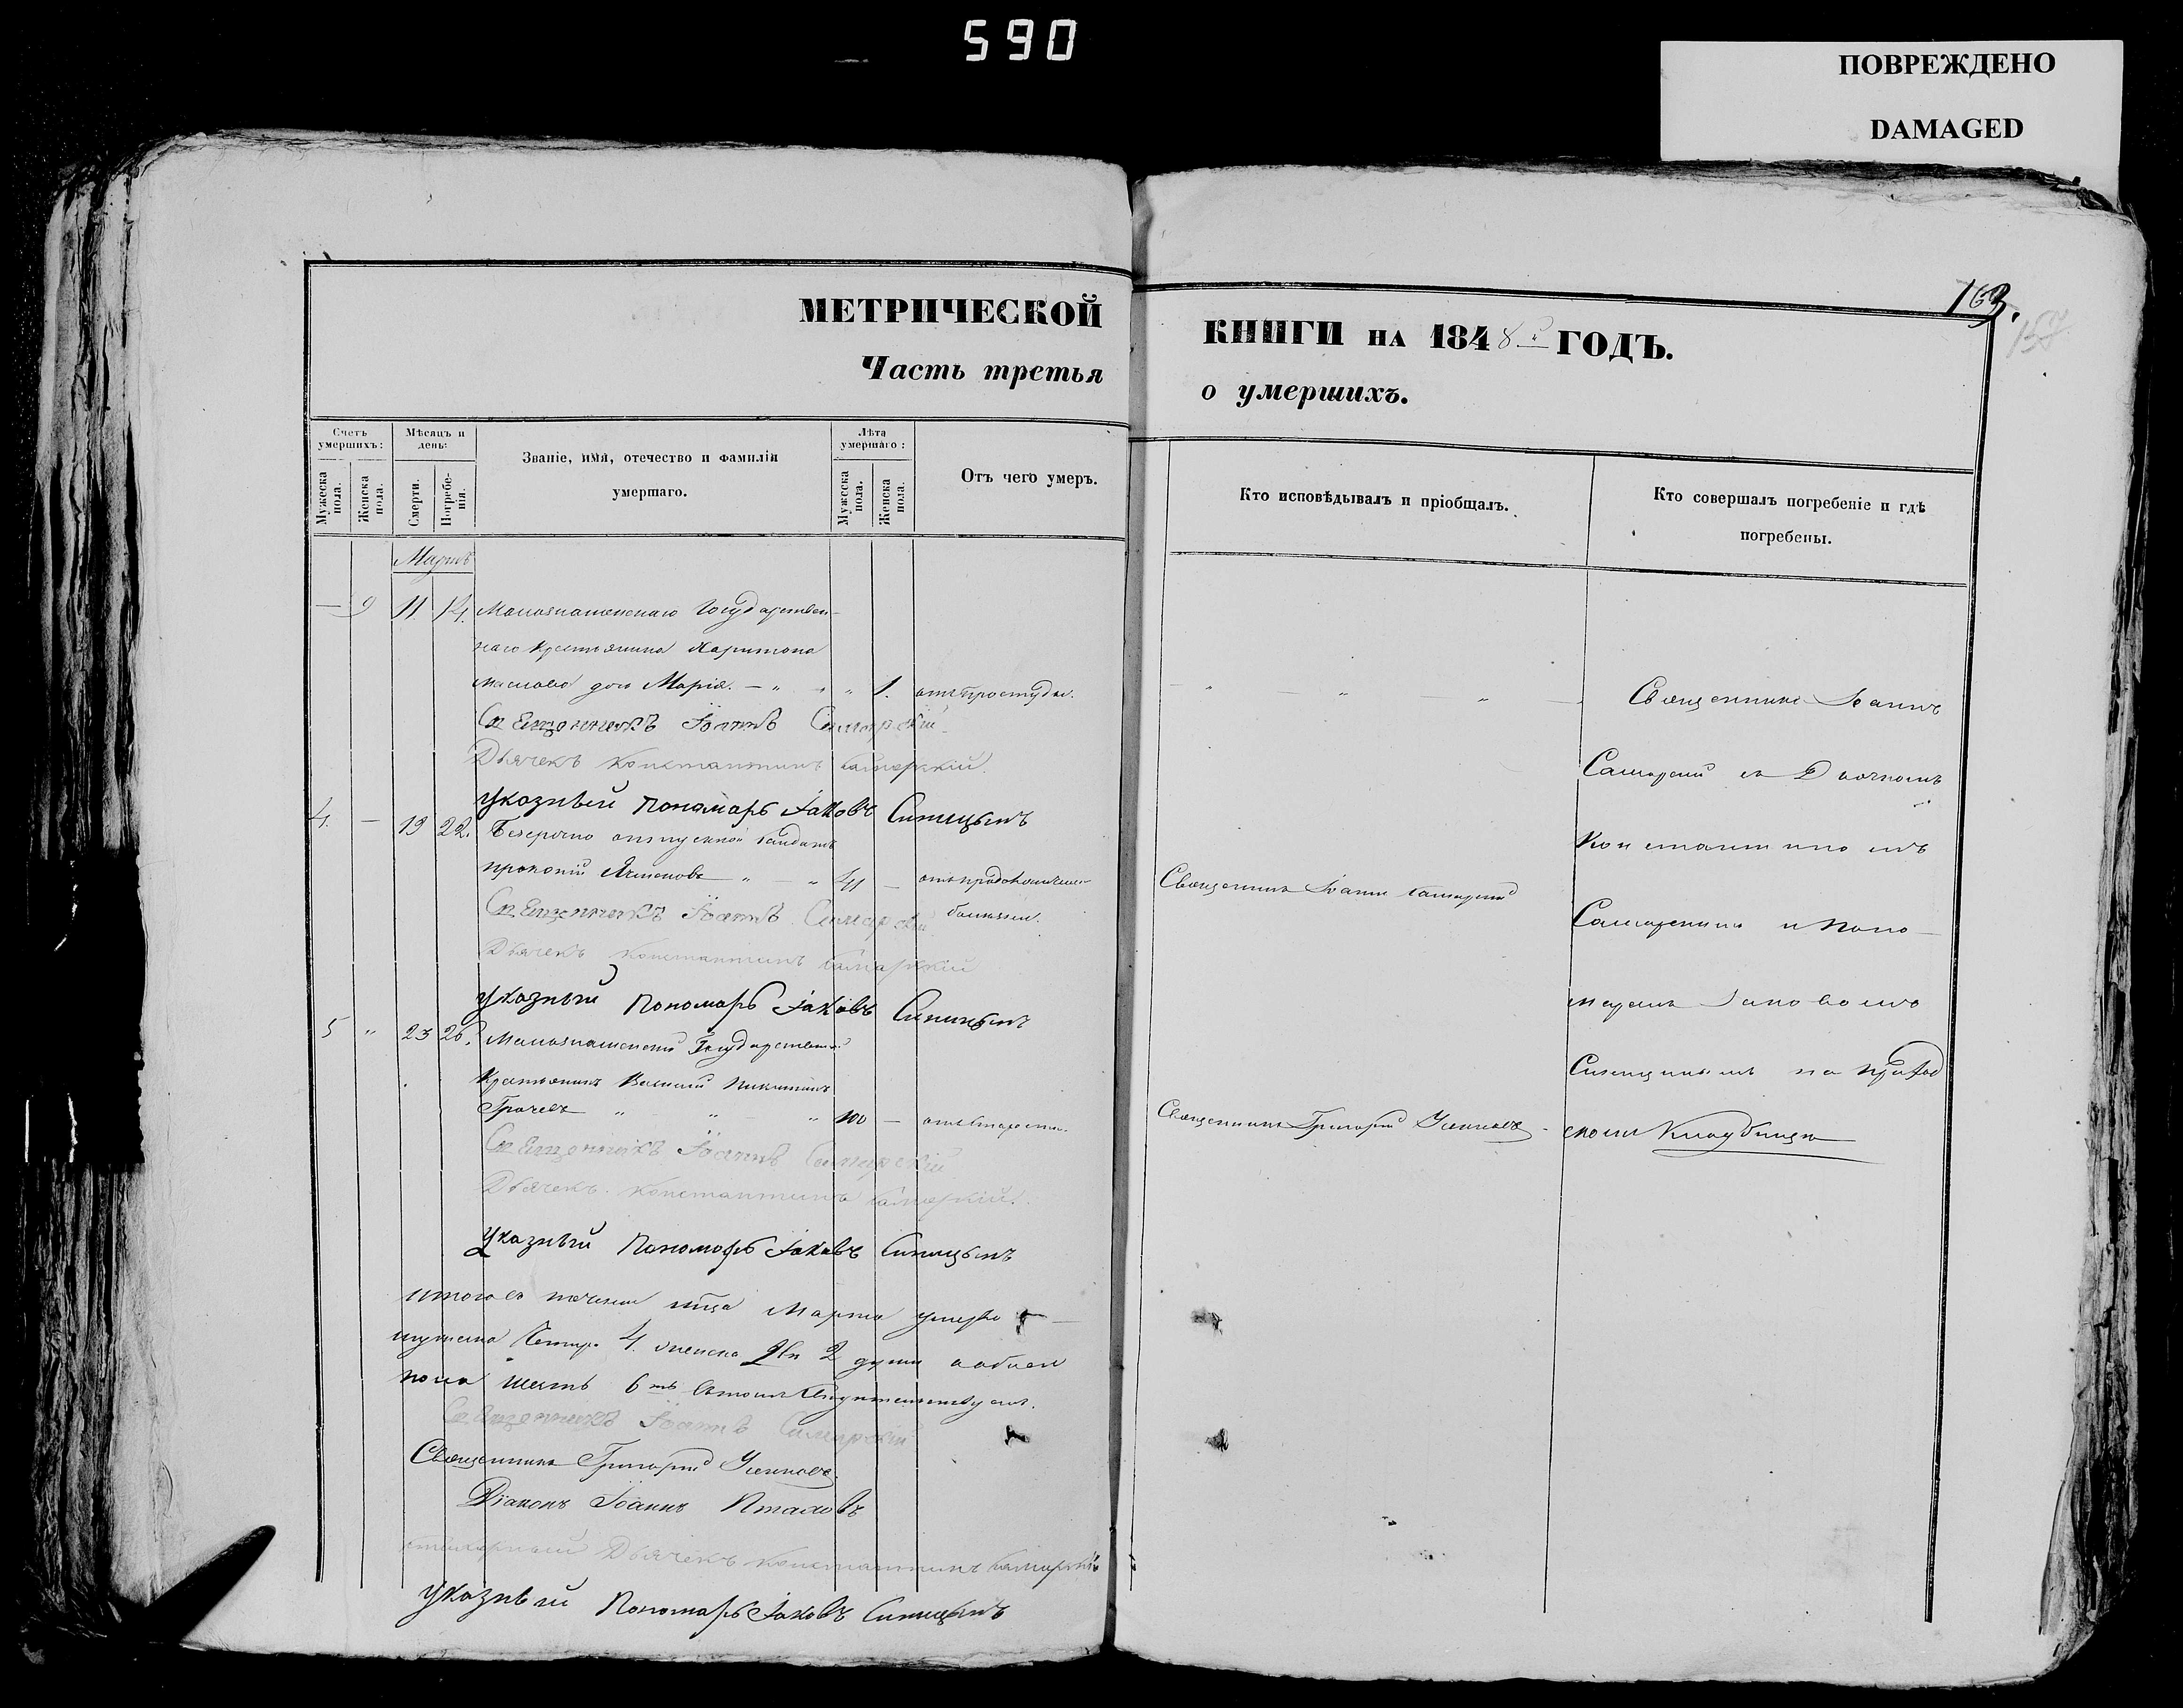 590
ПОВРЕЖДЕНО
DAMAGED
163.
МЕТРИЧЕСКОЙ
КНИГИ НА 1848 ГОДЪ.
Часть третья
о умершихъ.
Счетъ умершихъ:
Мужеска пола.
Женска пола.
Мѣсяцъ и день:
Смерти.
Погребенія.
Званіе, имя, отечество и фамилія
умершаго.
Лѣта умершаго:
Мужеска пола.
Женска пола.
Отъ чего умеръ.
Кто исповѣдывалъ и пріобщалъ.
Кто совершалъ погребеніе и гдѣ
погребены.
Мартъ
— 9 11 14. Государствен-
наго крестьянина Харитона
Маслова дочь Марія. 1. отъ простуды.
Священникъ Іоаннъ Самарскій
Дьячекъ Константинъ Самарскій
Указный Пономарь Іаковъ Синицынъ
4. — 19 22. Безсрочно отпускной
Прокопій 41 —
болезни.
Священникъ Іоаннъ Самарскій
Дьячекъ Константинъ Самарскій
Указный Пономарь Іаковъ Синицынъ
5 " 23 26.
Крестьянинъ Василій Никитинъ
Грачевъ 100 — отъ старости.
Священникъ Іоаннъ Самарскій
Дьячекъ Константинъ Самарскій
Указный Пономарь Іаковъ Синицынъ
Итого въ теченіи мѣсяца Марта умерло
мужеска 4. женска 2 души обоего
пола шесть 6ть
Священникъ Іоаннъ Самарскій
Священникъ Григорій
Діаконъ Іоаннъ Птаховъ
Дьячекъ Константинъ Самарскій
Указный Пономарь Іаковъ Синицынъ
Священникъ Іоаннъ Самарскій
Священникъ Григорій
Священникъ Іоаннъ
Самарскій съ Дьячкомъ
Константиномъ
Самарскимъ и Поно-
маремъ Іаковомъ
Синицынымъ на приход
скомъ кладбищѣ